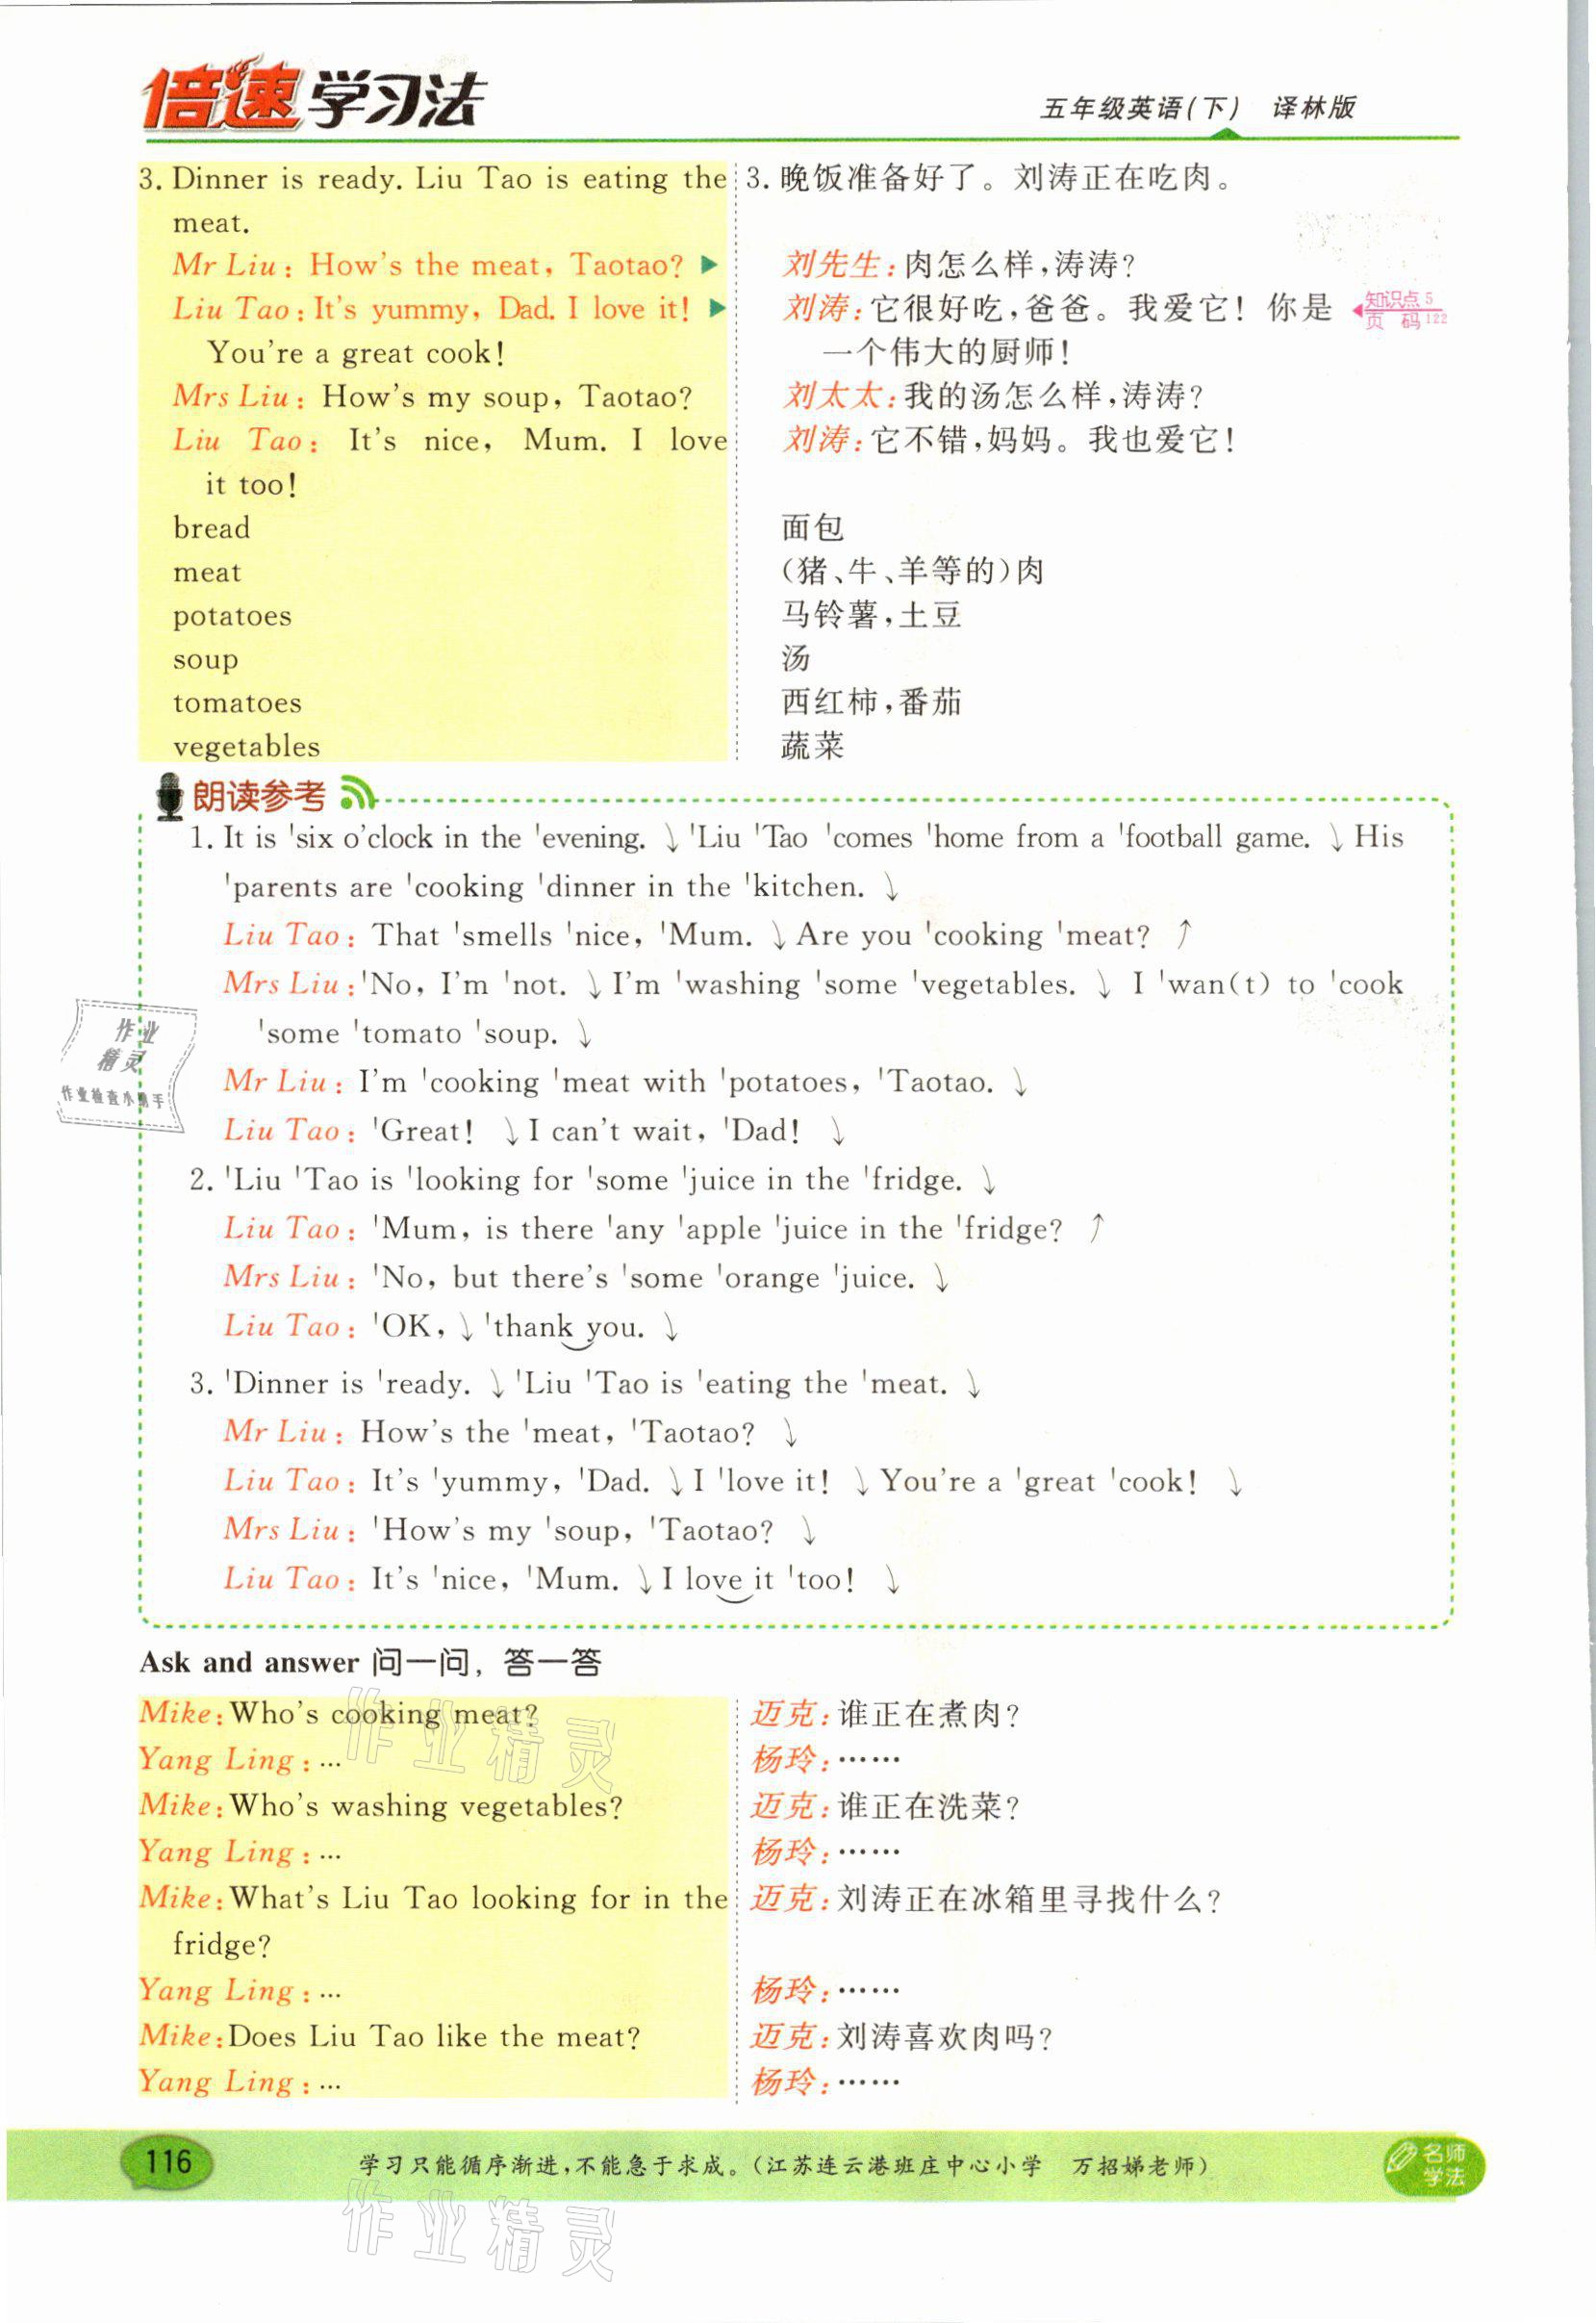 倍速学习法
五年级英语(下) 译林版
3. Dinner is ready. Liu Tao is eating the
meat.
Mr Liu: How's the meat, Taotao?
Liu Tao: It's yummy, Dad. I love it!
You're a great cook!
Mrs Liu: How's my soup, Taotao?
Liu Tao: It's nice, Mum. I love
it too!
bread
meat
potatoes
soup
tomatoes
vegetables
3. 晚饭准备好了。刘涛正在吃肉。
刘先生:肉怎么样,涛涛?
刘涛:它很好吃,爸爸。我爱它! 你是
一个伟大的厨师!
知识点 5
页 码 122
刘太太:我的汤怎么样,涛涛?
刘涛:它不错,妈妈。我也爱它!
面包
(猪、牛、羊等的)肉
马铃薯,土豆
汤
西红柿,番茄
蔬菜
朗读参考
1. It is 'six o'clock in the 'evening. ↘ 'Liu 'Tao 'comes 'home from a 'football game. ↘ His
'parents are 'cooking 'dinner in the 'kitchen. ↘
Liu Tao: That 'smells 'nice, 'Mum. ↘ Are you 'cooking 'meat? ↗
Mrs Liu: 'No, I'm 'not. ↘ I'm 'washing 'some 'vegetables. ↘ I 'wan(t) to 'cook
'some 'tomato 'soup. ↘
Mr Liu: I'm 'cooking 'meat with 'potatoes, 'Taotao. ↘
Liu Tao: 'Great! ↘ I can't wait, 'Dad! ↘
2. 'Liu 'Tao is 'looking for 'some 'juice in the 'fridge. ↘
Liu Tao: 'Mum, is there 'any 'apple 'juice in the 'fridge? ↗
Mrs Liu: 'No, but there's 'some 'orange 'juice. ↘
Liu Tao: 'OK, ↘ 'thank you. ↘
3. 'Dinner is 'ready. ↘ 'Liu 'Tao is 'eating the 'meat. ↘
Mr Liu: How's the 'meat, 'Taotao? ↘
Liu Tao: It's 'yummy, 'Dad. ↘ I 'love it! ↘ You're a 'great 'cook! ↘
Mrs Liu: 'How's my 'soup, 'Taotao? ↘
Liu Tao: It's 'nice, 'Mum. ↘ I love it 'too! ↘
作业
精灵
作业检查小助手
Ask and answer 问一问,答一答
Mike: Who's cooking meat?
Yang Ling: …
Mike: Who's washing vegetables?
Yang Ling: …
Mike: What's Liu Tao looking for in the
fridge?
Yang Ling: …
Mike: Does Liu Tao like the meat?
Yang Ling: …
迈克:谁正在煮肉?
杨玲:……
迈克:谁正在洗菜?
杨玲:……
迈克:刘涛正在冰箱里寻找什么?
杨玲:……
迈克:刘涛喜欢肉吗?
杨玲:……
作业精灵
116
学习只能循序渐进,不能急于求成。(江苏连云港班庄中心小学 万招娣老师)
名师
学法
作业精灵